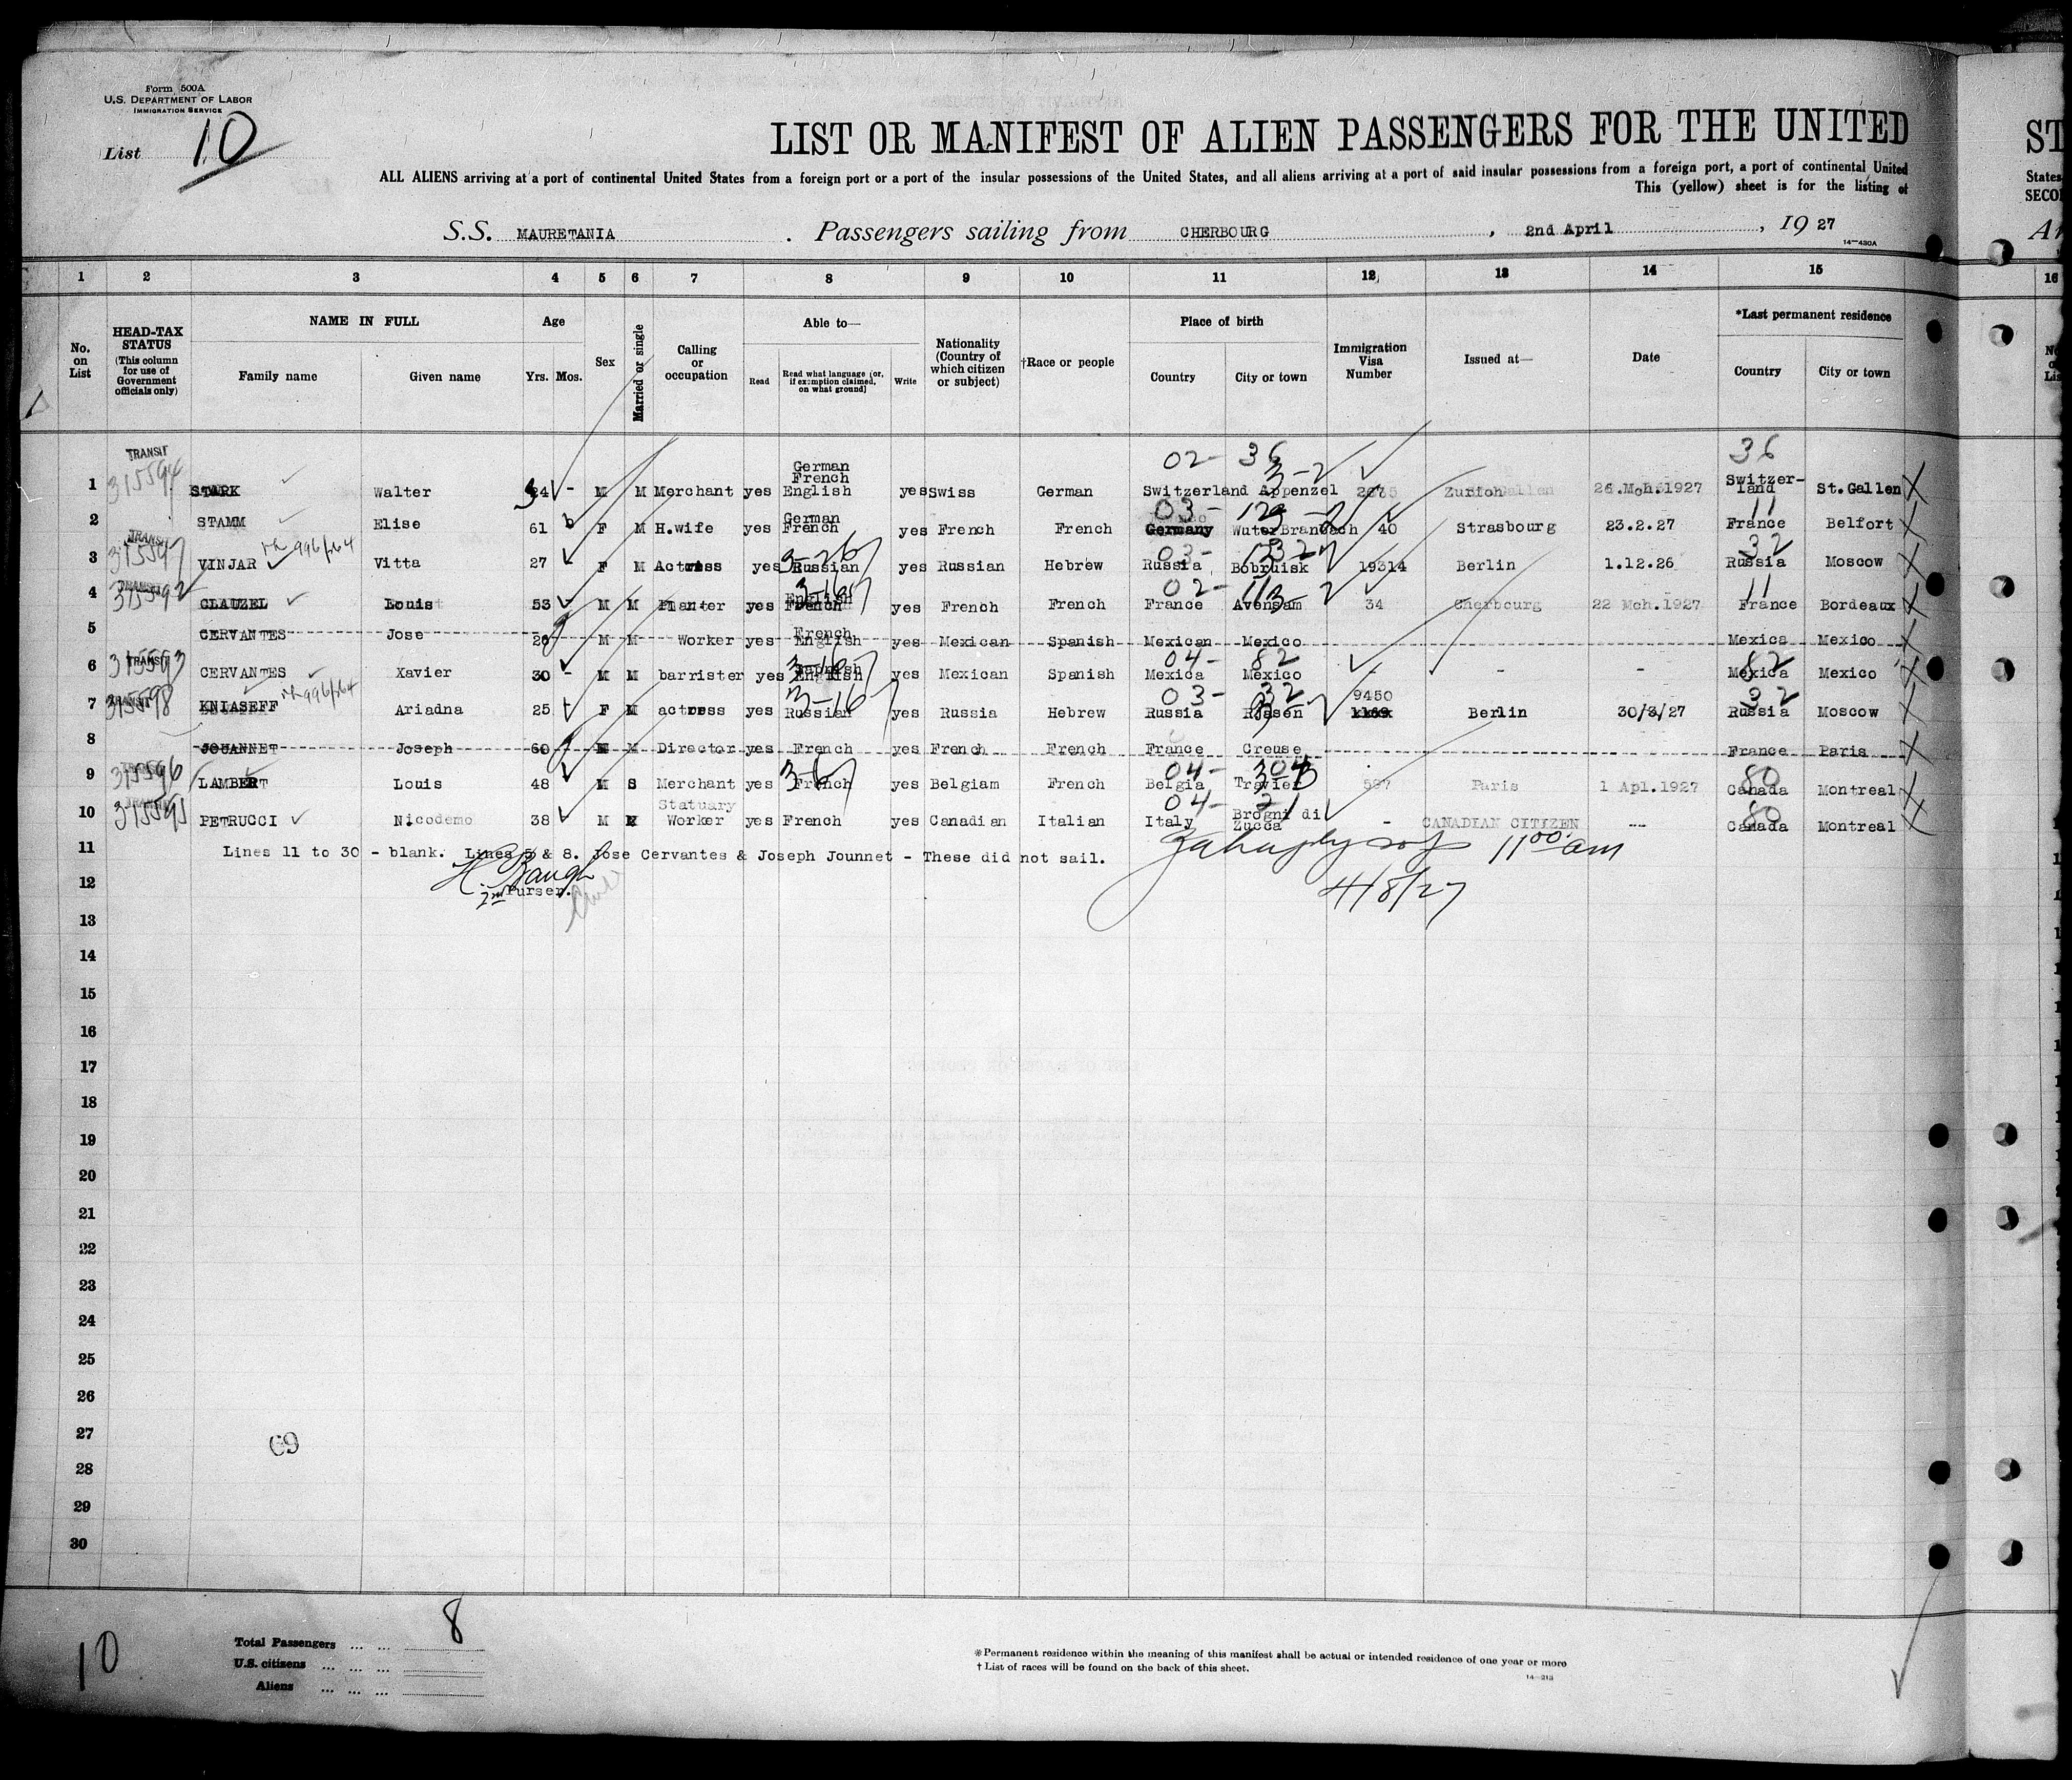 Form 500A
U.S. DEPARTMENT OF LABOR
IMMIGRATION SERVICE
List 10
LIST OR MANIFEST OF ALIEN PASSENGERS FOR THE UNITED
ALL ALIENS arriving at a port of continental United States from a foreign port or a port of the insular possessions of the United States, and all aliens arriving at a port of said insular possessions from a foreign port, a port of continental United
This (yellow) sheet is for the listing of
S.S. MAURETANIA . Passengers sailing from CHERBOURG , 2nd April , 19 27
14-430A
1 2 3 4 5 6 7 8 9 10 11 12 13 14 15
No. on List
HEAD-TAX STATUS (This column for use of Government officials only)
NAME IN FULL
Family name Given name
Age
Yrs. Mos.
Sex
Married or single
Calling or occupation
Able to—
Read Read what language (or, if exemption claimed, on what ground) Write
Nationality (Country of which citizen or subject)
†Race or people
Place of birth
Country City or town
Immigration Visa Number
Issued at—
Date
*Last permanent residence
Country City or town
TRANSIT 02- 36 36
1 315594 STARK Walter 34 - M M Merchant yes German French English yes Swiss German Switzerland Appenzel Zurich 26.Mch.1927 Switzerland St.Gallen
2 STAMM Elise 61 F M H.wife yes German French yes French French Germany 40 Strasbourg 23.2.27 France Belfort
3 TRANSIT 315597 VINJAR Vitta 27 F M Actress yes Russian yes Russian Hebrew Russia Bobruisk 19314 Berlin 1.12.26 Russia Moscow
4 TRANSIT 315592 CLAUZEL Louis 53 - M M Planter yes English French yes French French France Avensam 34 Cherbourg 22 Mch.1927 France Bordeaux
5 CERVANTES Jose M M Worker yes French English yes Mexican Spanish Mexican Mexico Mexica Mexico
6 TRANSIT 315593 CERVANTES Xavier 30 - M M barrister yes Spanish English yes Mexican Spanish Mexica Mexico - - - Mexica Mexico
7 TRANSIT 315598 KNIASEFF Ariadna 25 F M actress yes Russian yes Russia Hebrew Russia 9450 Berlin 30/3/27 Russia Moscow
8 JOUANNET Joseph 60 M M Director yes French yes French French France Creuse France Paris
9 TRANSIT 315596 LAMBERT Louis 48 M S Merchant yes French yes Belgiam French Belgia Travier 597 Paris 1 Apl.1927 Canada Montreal
10 TRANSIT 315595 PETRUCCI Nicodemo 38 M M Statuary Worker yes French yes Canadian Italian Italy Brogni di Zucca - CANADIAN CITIZEN -- Canada Montreal
11 Lines 11 to 30 - blank. Lines 5 & 8. Jose Cervantes & Joseph Jounnet - These did not sail. 11 00 am
12 H. Baugh 4/8/27
2nd Purser.
13
14
15
16
17
18
19
20
21
22
23
24
25
26
27
69
28
29
30
10
Total Passengers ... ... 8
U.S. citizens ... ... ...
Aliens ... ... ...
*Permanent residence within the meaning of this manifest shall be actual or intended residence of one year or more
† List of races will be found on the back of this sheet.
14-213
ST
States
SECO
Ar
16